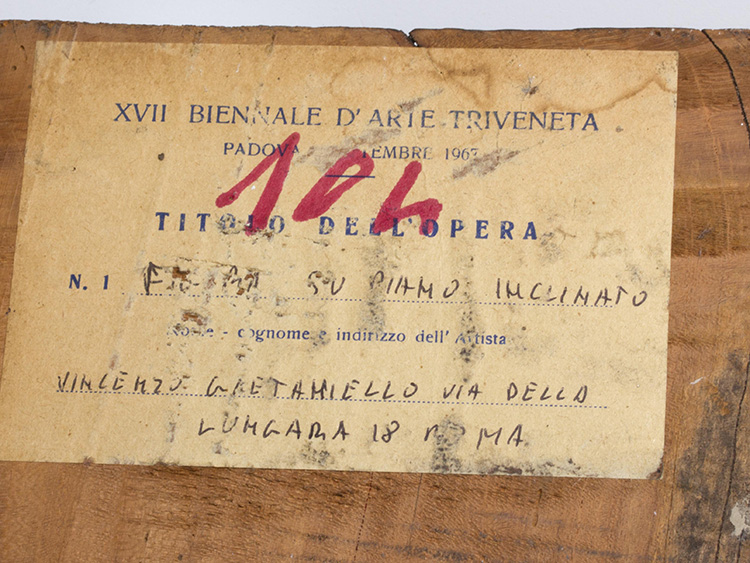 XVII BIENNALE D'ARTE TRIVENETA
PADOVA 1967
104
TITOLO DELL'OPERA
N. 1 SU PIANO INCLINATO
cognome e indirizzo dell'Artista
VINCENZO GAETANIELLO VIA DELLA
LUNGARA 18 ROMA